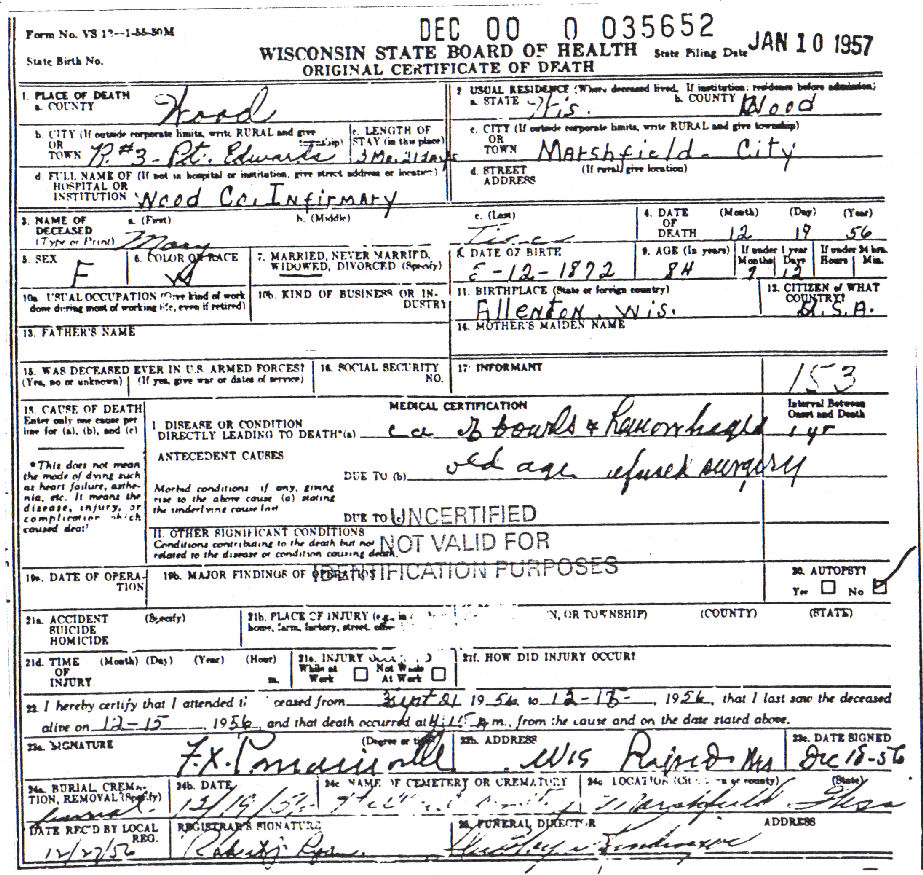 DEC 00 0 035652
Form No. VS 12--1-55-30M
WISCONSIN STATE BOARD OF HEALTH State Filing Date JAN 10 1957
State Birth No.
ORIGINAL CERTIFICATE OF DEATH
1. PLACE OF DEATH
a. COUNTY Wood
2. USUAL RESIDENCE (Where deceased lived. If institution: residence before admission)
a. STATE Wis. b. COUNTY Wood
b. CITY (If outside corporate limits, write RURAL and give township)
OR
TOWN R#3- Pt. Edwards
c. LENGTH OF
STAY (in this place)
3 Mo. 21 days
c. CITY (If outside corporate limits, write RURAL and give township)
OR
TOWN Marshfield- City
d. FULL NAME OF (If not in hospital or institution, give street address or location)
HOSPITAL OR
INSTITUTION Wood Co. Infirmary
d. STREET (If rural, give location)
ADDRESS
3. NAME OF
DECEASED
(Type or Print)
a. (First) b. (Middle) c. (Last)
Mary
4. DATE (Month) (Day) (Year)
OF
DEATH 12 19 56
5. SEX
F
6. COLOR OR RACE
7. MARRIED, NEVER MARRIED,
WIDOWED, DIVORCED (Specify)
8. DATE OF BIRTH
-12-1872
9. AGE (In years)
84
If under 1 year
Months Days
12
If under 24 hrs.
Hours Min.
10a. USUAL OCCUPATION (Give kind of work
done during most of working life, even if retired)
10b. KIND OF BUSINESS OR IN-
DUSTRY
11. BIRTHPLACE (State or foreign country)
Allenton, Wis.
12. CITIZEN OF WHAT
COUNTRY?
U.S.A.
13. FATHER'S NAME
14. MOTHER'S MAIDEN NAME
15. WAS DECEASED EVER IN U.S. ARMED FORCES?
(Yes, no or unknown) (If yes, give war or dates of service)
16. SOCIAL SECURITY
NO.
17. INFORMANT
153
18. CAUSE OF DEATH
Enter only one cause per
line for (a), (b), and (c)
MEDICAL CERTIFICATION
Interval Between
Onset and Death
I. DISEASE OR CONDITION
DIRECTLY LEADING TO DEATH*(a) ca of bowels & hemorrhaged 1 yr
*This does not mean
the mode of dying such
as heart failure, asthe-
nia, etc. It means the
disease, injury, or
complication which
caused death.
ANTECEDENT CAUSES
DUE TO (b) old age refused surgery
Morbid conditions if any, giving
rise to the above cause (a) stating
the underlying cause last
DUE TO (c)
UNCERTIFIED
NOT VALID FOR
IDENTIFICATION PURPOSES
II. OTHER SIGNIFICANT CONDITIONS
Conditions contributing to the death but not
related to the disease or condition causing death.
19a. DATE OF OPERA-
TION
19b. MAJOR FINDINGS OF OPERATION
20. AUTOPSY?
Yes No
21a. ACCIDENT (Specify)
SUICIDE
HOMICIDE
21b. PLACE OF INJURY (e.g., in
home, farm, factory, street,
N, OR TOWNSHIP) (COUNTY) (STATE)
21d. TIME (Month) (Day) (Year) (Hour)
OF
INJURY m.
21e. INJURY
While at Work Not While At Work
21f. HOW DID INJURY OCCUR?
22. I hereby certify that I attended ceased from Sept 21 1956 to 12-15-, 1956, that I last saw the deceased
alive on 12-15, 1956, and that death occurred at 4:15 m., from the cause and on the date stated above.
23a. SIGNATURE (Degree or title)
F.X.
23b. ADDRESS
Wis
23c. DATE SIGNED
Dec 18-56
24a. BURIAL, CREMA-
TION, REMOVAL (Specify)
24b. DATE
12/19/56
24c. NAME OF CEMETERY OR CREMATORY
24d. LOCATION (City, or county) (State)
Marshfield
DATE REC'D BY LOCAL
REG.
12/27/56
REGISTRAR'S SIGNATURE
25. FUNERAL DIRECTOR ADDRESS